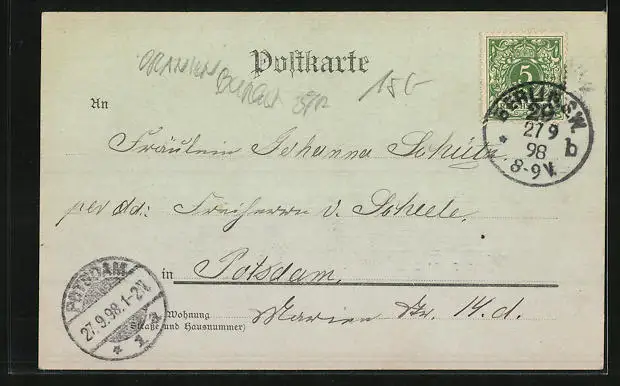 Postkarte
ORANIEN
BURG
15.-
5
BERLIN S.W.
29
27 9
98
b
8-9 V.
An
Fräulein Johanna Schütz
per dd: Freiherrn v. Scheele.
in Potsdam.
Wohnung
(Straße und Hausnummer)
Marien Str. 14. d.
POTSDAM
27.9.98.1-2N.
* 1 a